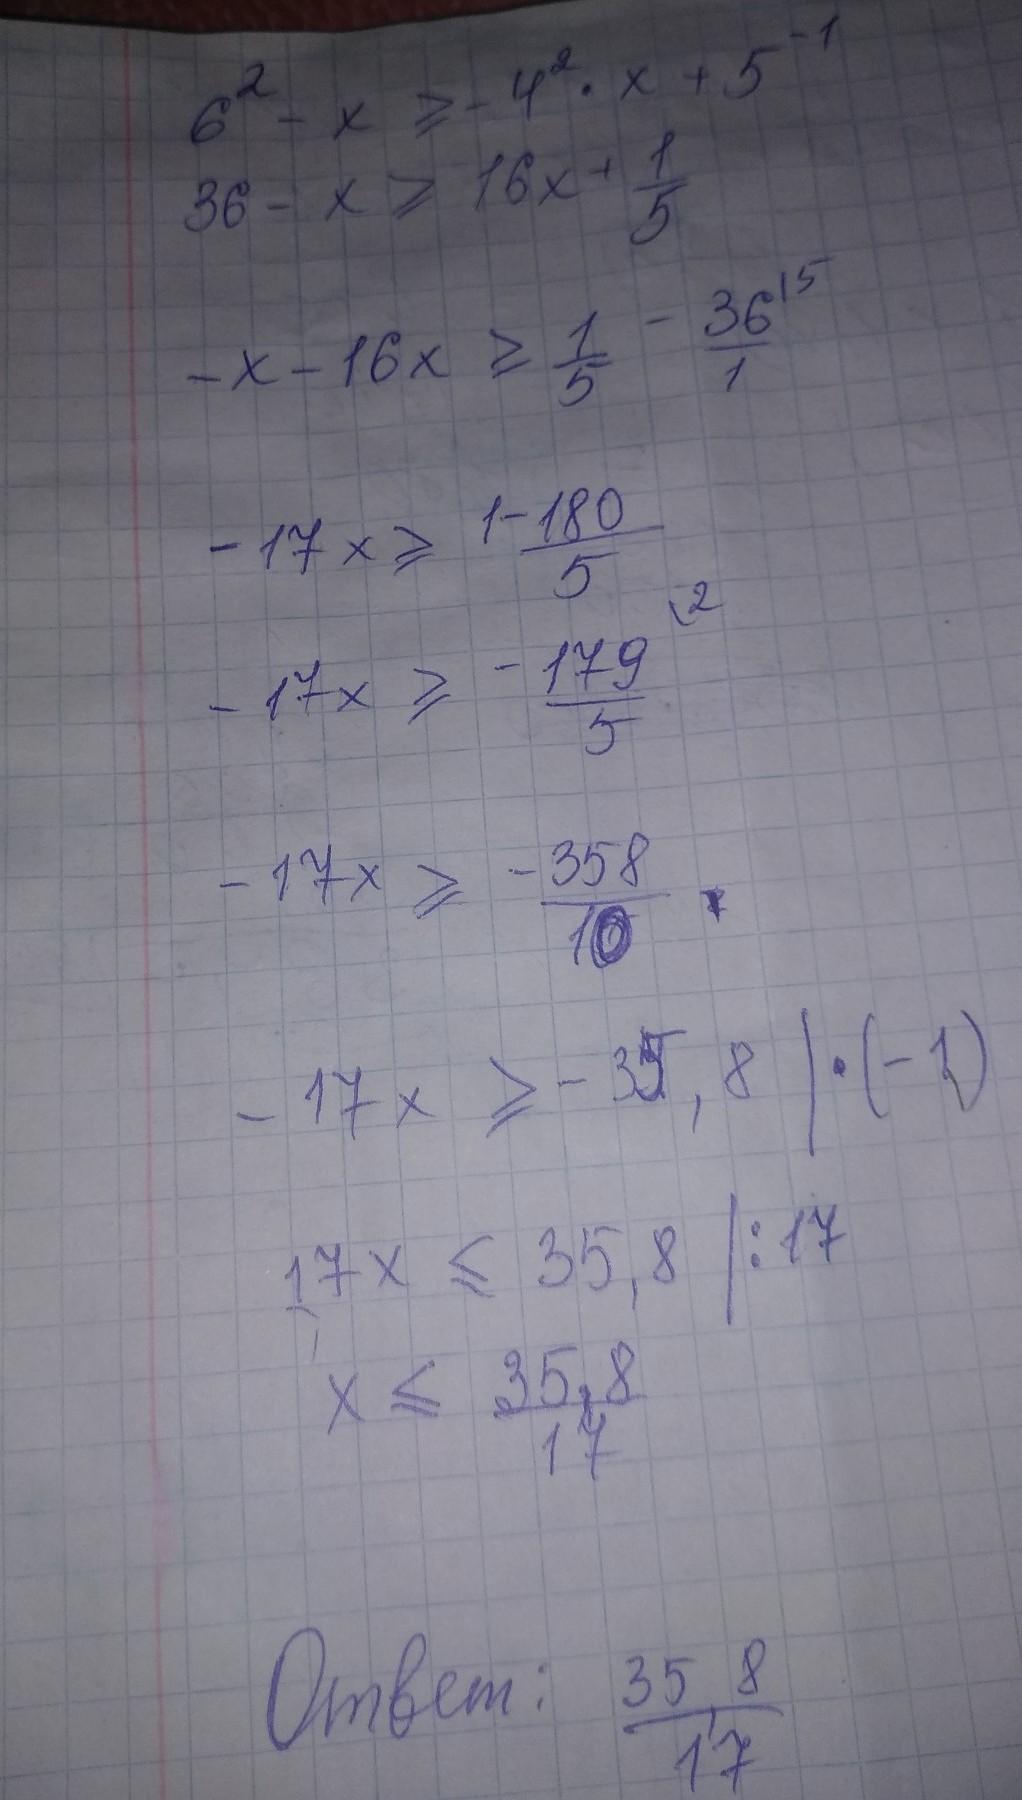 6² - x ⩾ - 4² · x + 5⁻¹
36 - x ⩾ 16x + 1/5
- x - 16x ⩾ 1/5 - 36/1 |5
- 17x ⩾ 1 - 180/5
- 17x ⩾ - 179/5 \2
- 17x ⩾ - 358/10
- 17x ⩾ - 35,8 | · (-1)
17x ⩽ 35,8 | : 17
x ⩽ 35,8/17
Ответ: 35,8/17